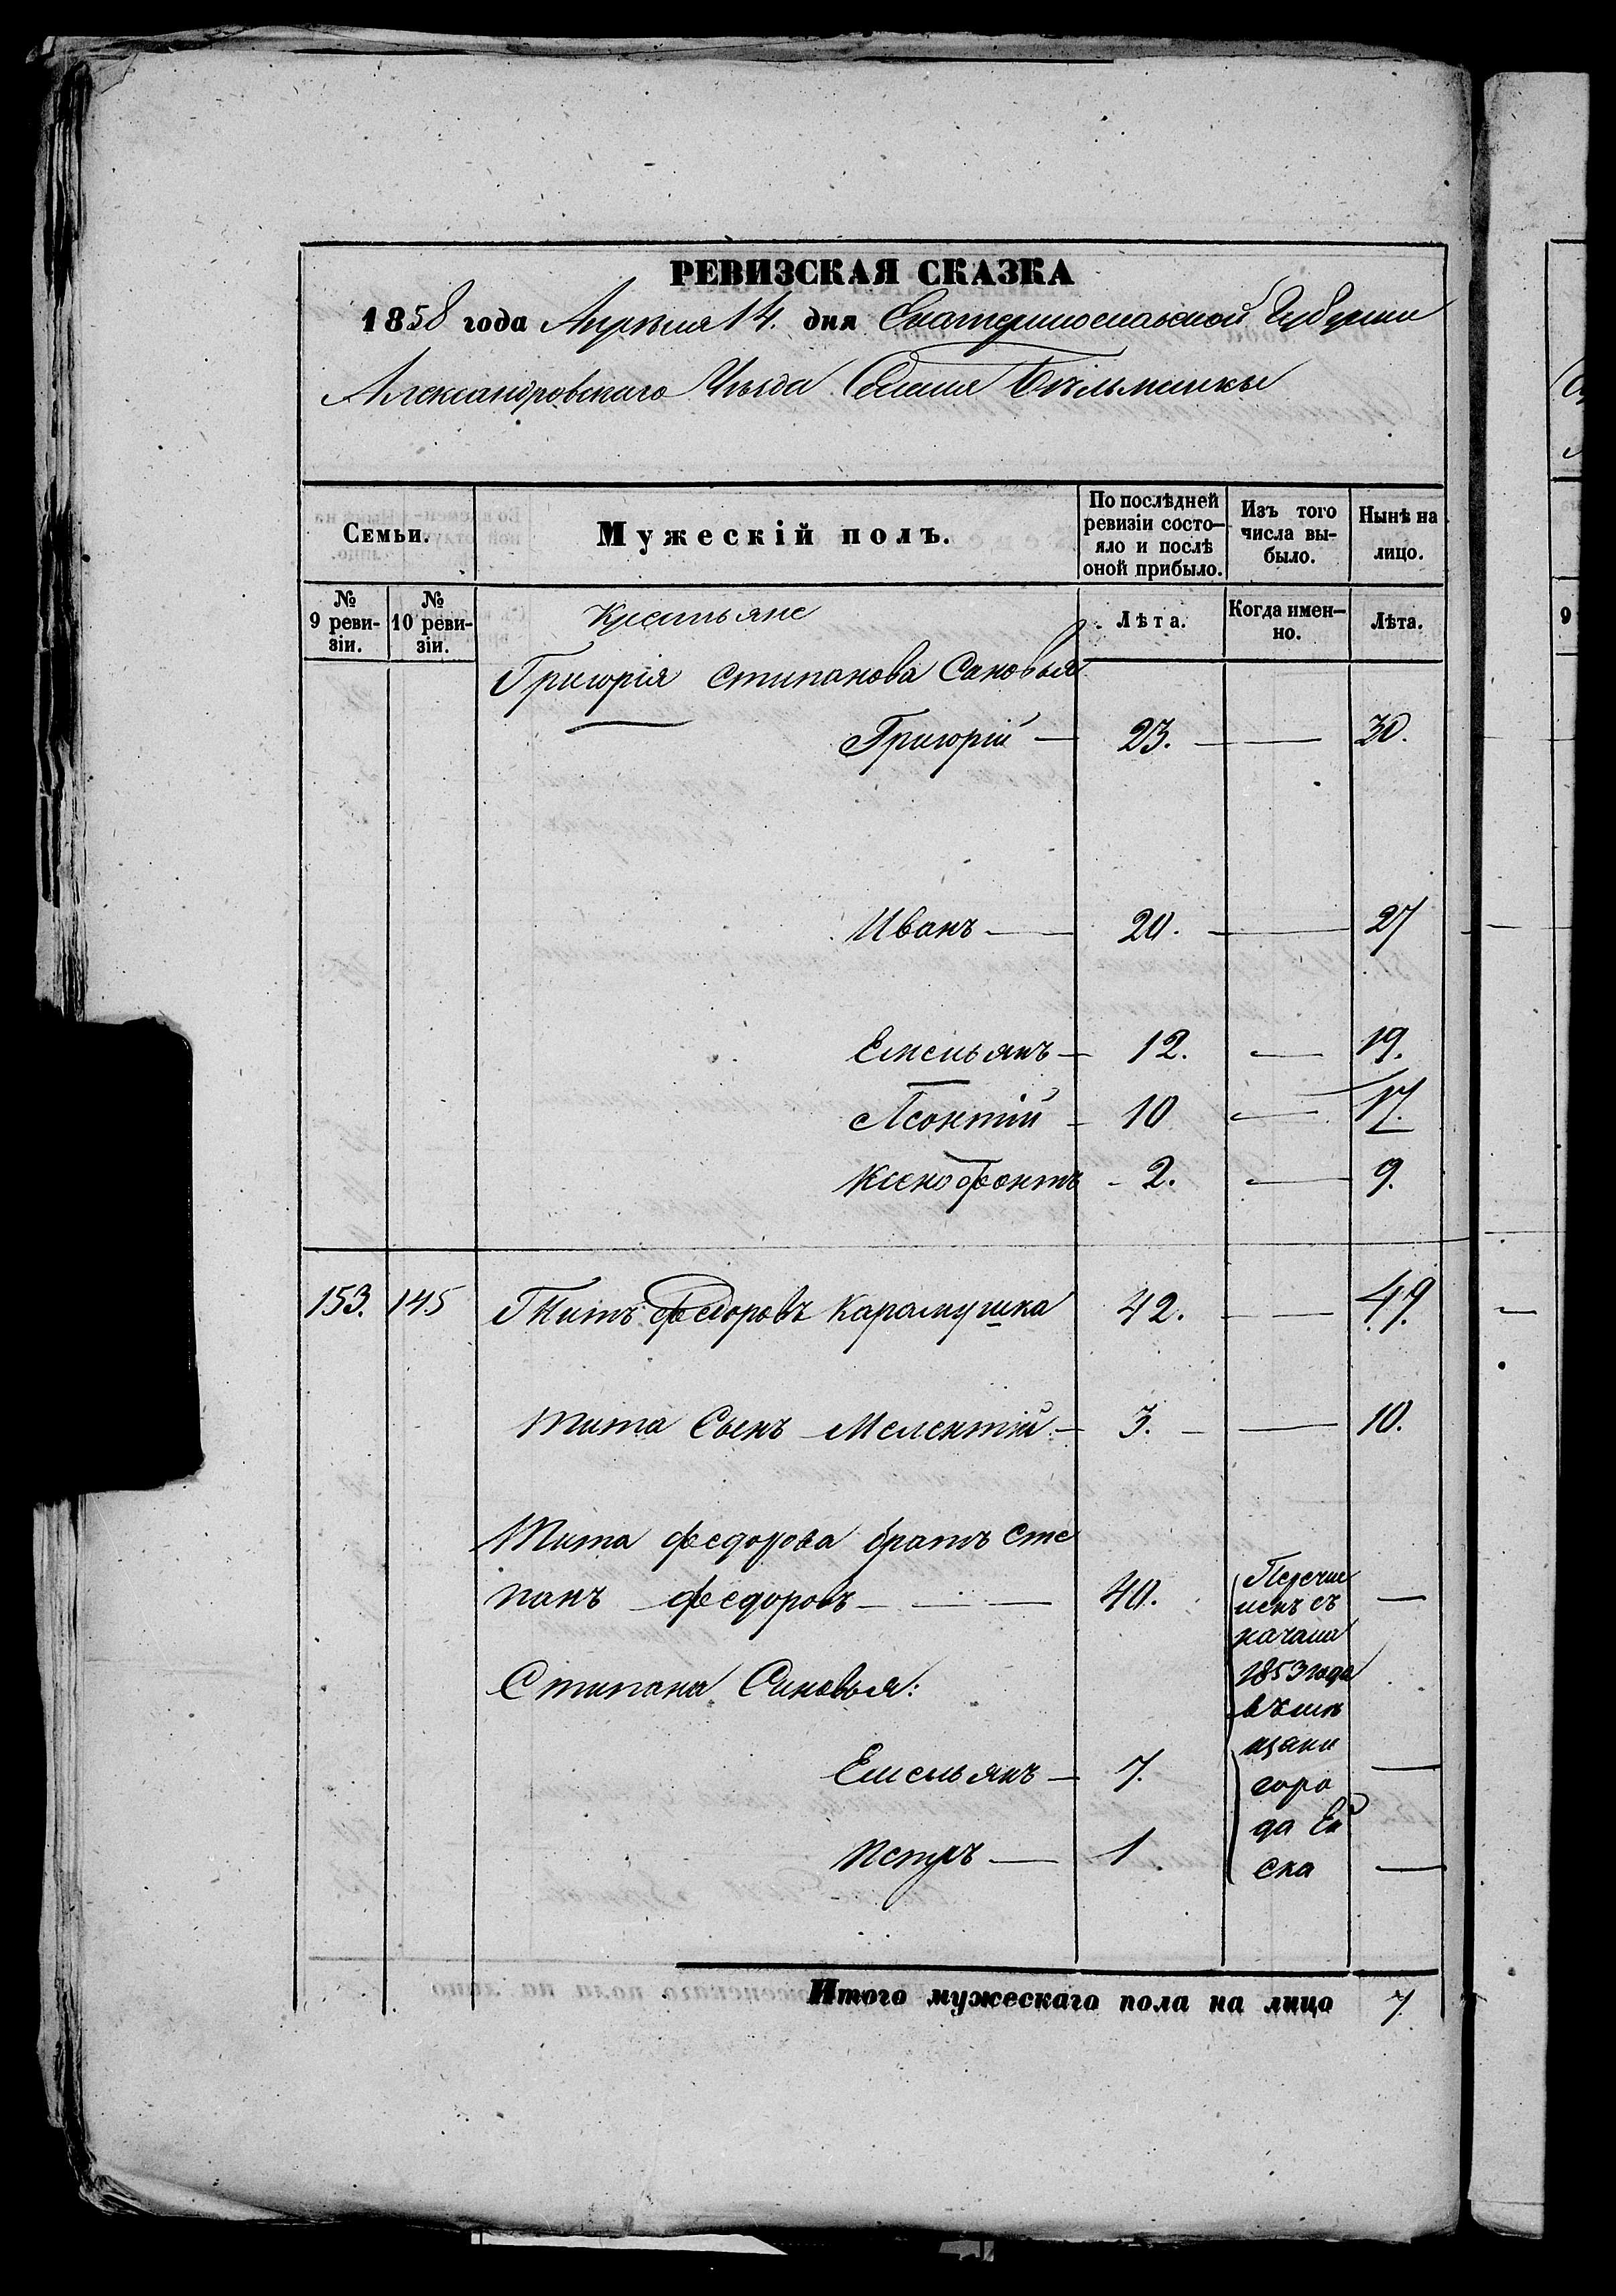 РЕВИЗСКАЯ СКАЗКА
1858 года Апреля 14. дня Екатеринославской Губернии
Александровскаго Уезда Селения Бѣльманки
Семьи.
Мужескій полъ.
По послѣдней ревизіи состо-яло и послѣ оной прибыло.
Изъ того числа вы-было.
Нынѣ на лицо.
№ 9 реви-зіи.
№ 10 реви-зіи.
Крестьяне
Лѣта.
Когда имен-но.
Лѣта.
Григорія Степанова Сыновья
Григорій — 23. — 30.
Иванъ — 20. — 27
Емельянъ — 12. — 19.
Леонтій - 10 — 17.
Ксенофонтъ - 2. — 9.
153. 145 Титъ Федоровъ Карамушка 42. — 49.
Тита Сынъ Мелентій — 3. — 10.
Тита федорова братъ Сте
панъ федоровъ — 40. —
Перечис
ленъ съ
начала
1853 года
въ мѣ
щани
горо
да Ей
ска
Степана Сыновья:
Емельянъ — 7. —
Петръ — 1. —
Итого мужескаго пола на лицо 7